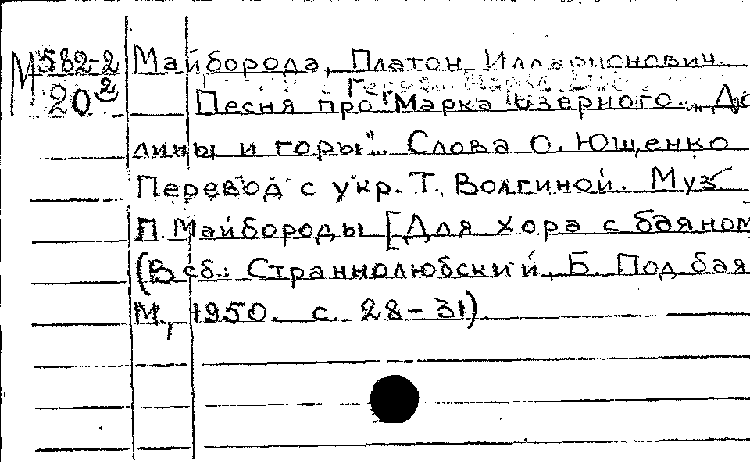 М 582-2 Майборода, Платон Илларионович.
20² Песня про Марка Озерного. „До
лины и горы". Слова О. Ющенко
Перевод с укр. Т. Волгиной. Муз.
П. Майбороды [Для хора с баяном
(В сб.: Страннолюбский, Б. Под бая
М., 1950. с. 28-31).